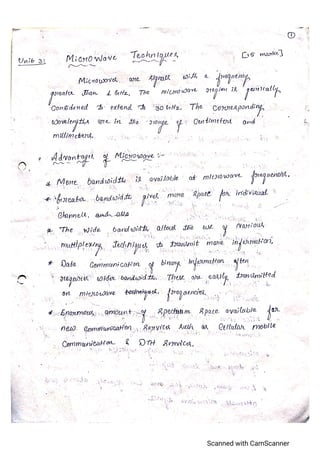 1
Unit 3: Microwave Techniques [15 marks]
Microwaves are signals with a frequency
greater than 1 GHz. The microwave region is generally
Considered to extend to 30 GHz. The corresponding
wavelengths are in the range of Centimeters and
millimeters.
* Advantages of Microwave :-
* More bandwidth is available at microwave frequencies.
* Greater bandwidth gives more space for individual
Channels,
* The wide bandwidth allows the use of various
multiplexing Techniques to transmit more information,
* Data Communication of binary information often
requires wider bandwidth. These are easily transmitted
on microwave frequencies.
* Enormous amount of Spectrum Space available for
new Communication Services Such as Cellular mobile
Communication & DTH Services.
Scanned with CamScanner